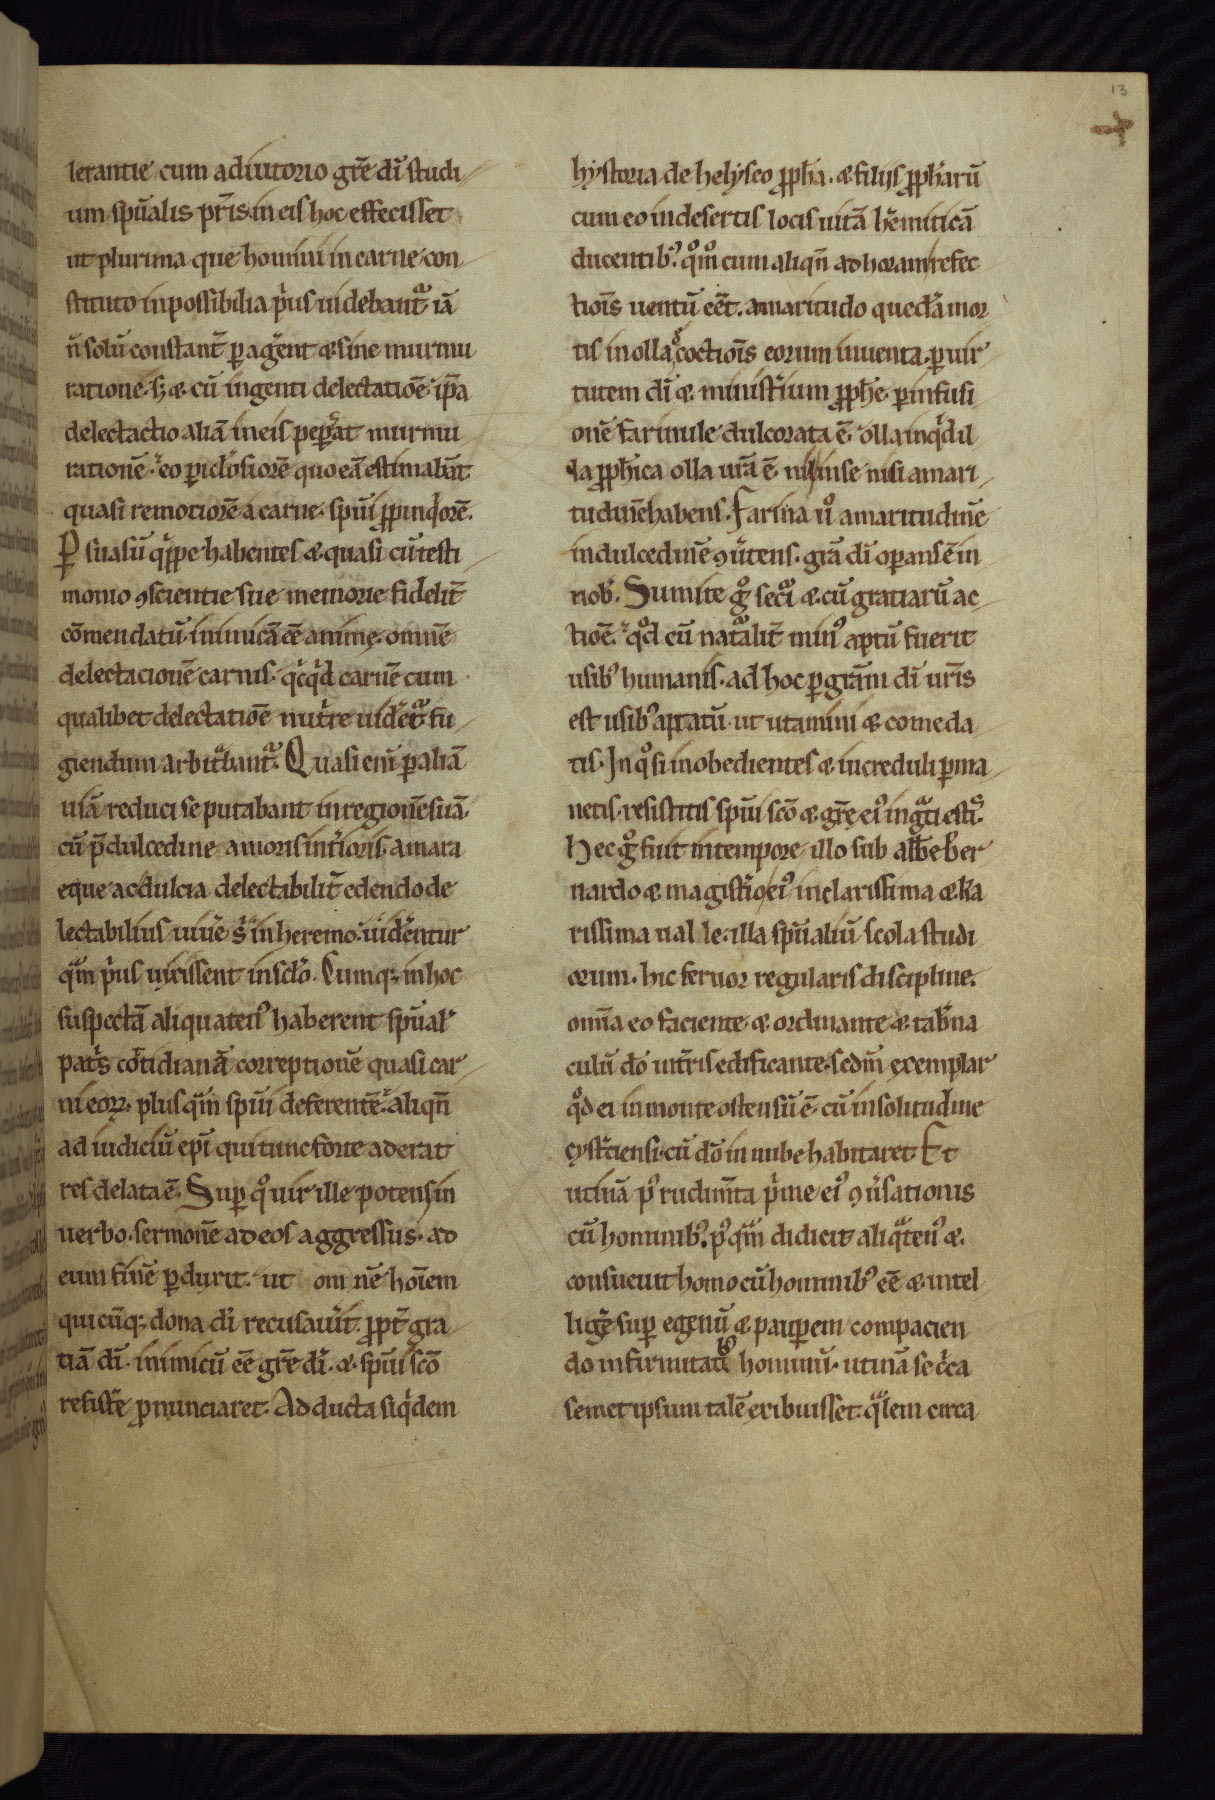 13
lerantie cum adiutorio gr̄e dī studi
um spūalis pr̄is in eis hoc effecisset
ut plurima que homini in carne con
stituto inpossibilia pius uidebantᷓ iā
n̄ solū constant̄ ꝑagent & sine murmu
ratione. sꝫ & cū ingenti delectatiōe. ip̄a
delectactio aliā in eis peꝑat murmu
rationē. eo ꝑiclosiorē quo eā estimabāt
quasi remotiorē a carne. spūi ꝓpinqͥorē.
P suasū qͥppe habentes & quasi cū testi
monio ꝯscientie sue memorie fidelit̄
cōmendatū. inimicā eē anime. omnē
delectacionē carnis. qͥcqͥd carnē cum
qualibet delectatiōe nut̄re uidetᷓ fu
giendum arbitͣbantᷓ. Quasi eni ꝑ aliā
uiā reduci se putabant in regionē suā.
cū p̄ dulcedine amoris int̄ioris. amara
eque ac dulcia delectabilit̄ edendo de
lectabilius uiuē s̄ in heremo. uidentur
qͣm pͥus uixissent in sclo. Cumqꝫ in hoc
suspectā aliquatenꝰ haberent spūal'
patͥs cotidianā correptionē quasi car
ni eorꝝ plus qͣm spūi deferentē. aliqn̄
ad iudiciū epi qui tunc forte aderat
res delata ē. Sup qͦ uir ille potens in
uerbo. sermonē ad eos aggressus. ad
eum finē ꝑduxit. ut omnē hoīem
quicūqꝫ dona dī recusauīt. ꝓpt̄ gra
tiā dī. inimicū eē gr̄e dī. & spūi scō
resistē ꝓnunciaret. Adducta siqͥdem
hystoria de helyseo ꝓpha. & filiis ꝓpharū
cum eo in desertis locis uitā hemiticā
ducentibꝰ. qͦmͦ cum aliqn̄ ad horam refec
tiōis uentū eēt. amaritudo quedā mor
tis in olla coctiōis eorum inuenta. ꝑ uir
tutem dī & minist̄ium ꝓphe. ꝑ infusi
onē farinule dulcorata ē. olla inqͥd il
la ꝓphica olla ur̄a ē. nil in se nisi amari
tudinē habens. Farina uͦ amaritudinē
in dulcedinē ꝯuertens. grā dī operans ē in
nob̄. Sumite gͦ secͥ & cū gratiarū ac
tiōe. qͦd cū natᷓalit̄ minꝰ aptū fuerit
usibꝰ humanis. ad hoc ꝑ gr̄am dī ur̄is
est usibꝰ aptatū. ut utamini & comeda
tis. In qͦ si inobedientes & increduli ꝑma
netis. resistitis spūi scō & gr̄e eiꝰ ingͣti estis.
Hec gͦ fuit in tempore illo sub abbe ber
nardo & magist̄io eiꝰ in clarissima & ka
rissima ualle. illa spūaliū scola studi
orum. hic feruor regularis discipline.
omīa eo faciente & ordinante & tab̄na
culū do in t̄ris edificante. scdm̄ exemplar
qͦd ei in monte ostensū ē. cū in solitudine
cyst̄ciensi. cū dō in nube habitaret. Et
utinā pꝰ rudimt̄a pͥme eiꝰ ꝯuersationis
cū hominibꝰ. pꝰ qͣm didicit aliqͣtenꝰ &
consueuit homo cū hominibꝰ eē & intel
ligē sup egenū & pauꝑem compacien
do infirmitatibꝰ hominū. utinā se cͥca
semet ipsum talē exibuisset. qͣlem circa